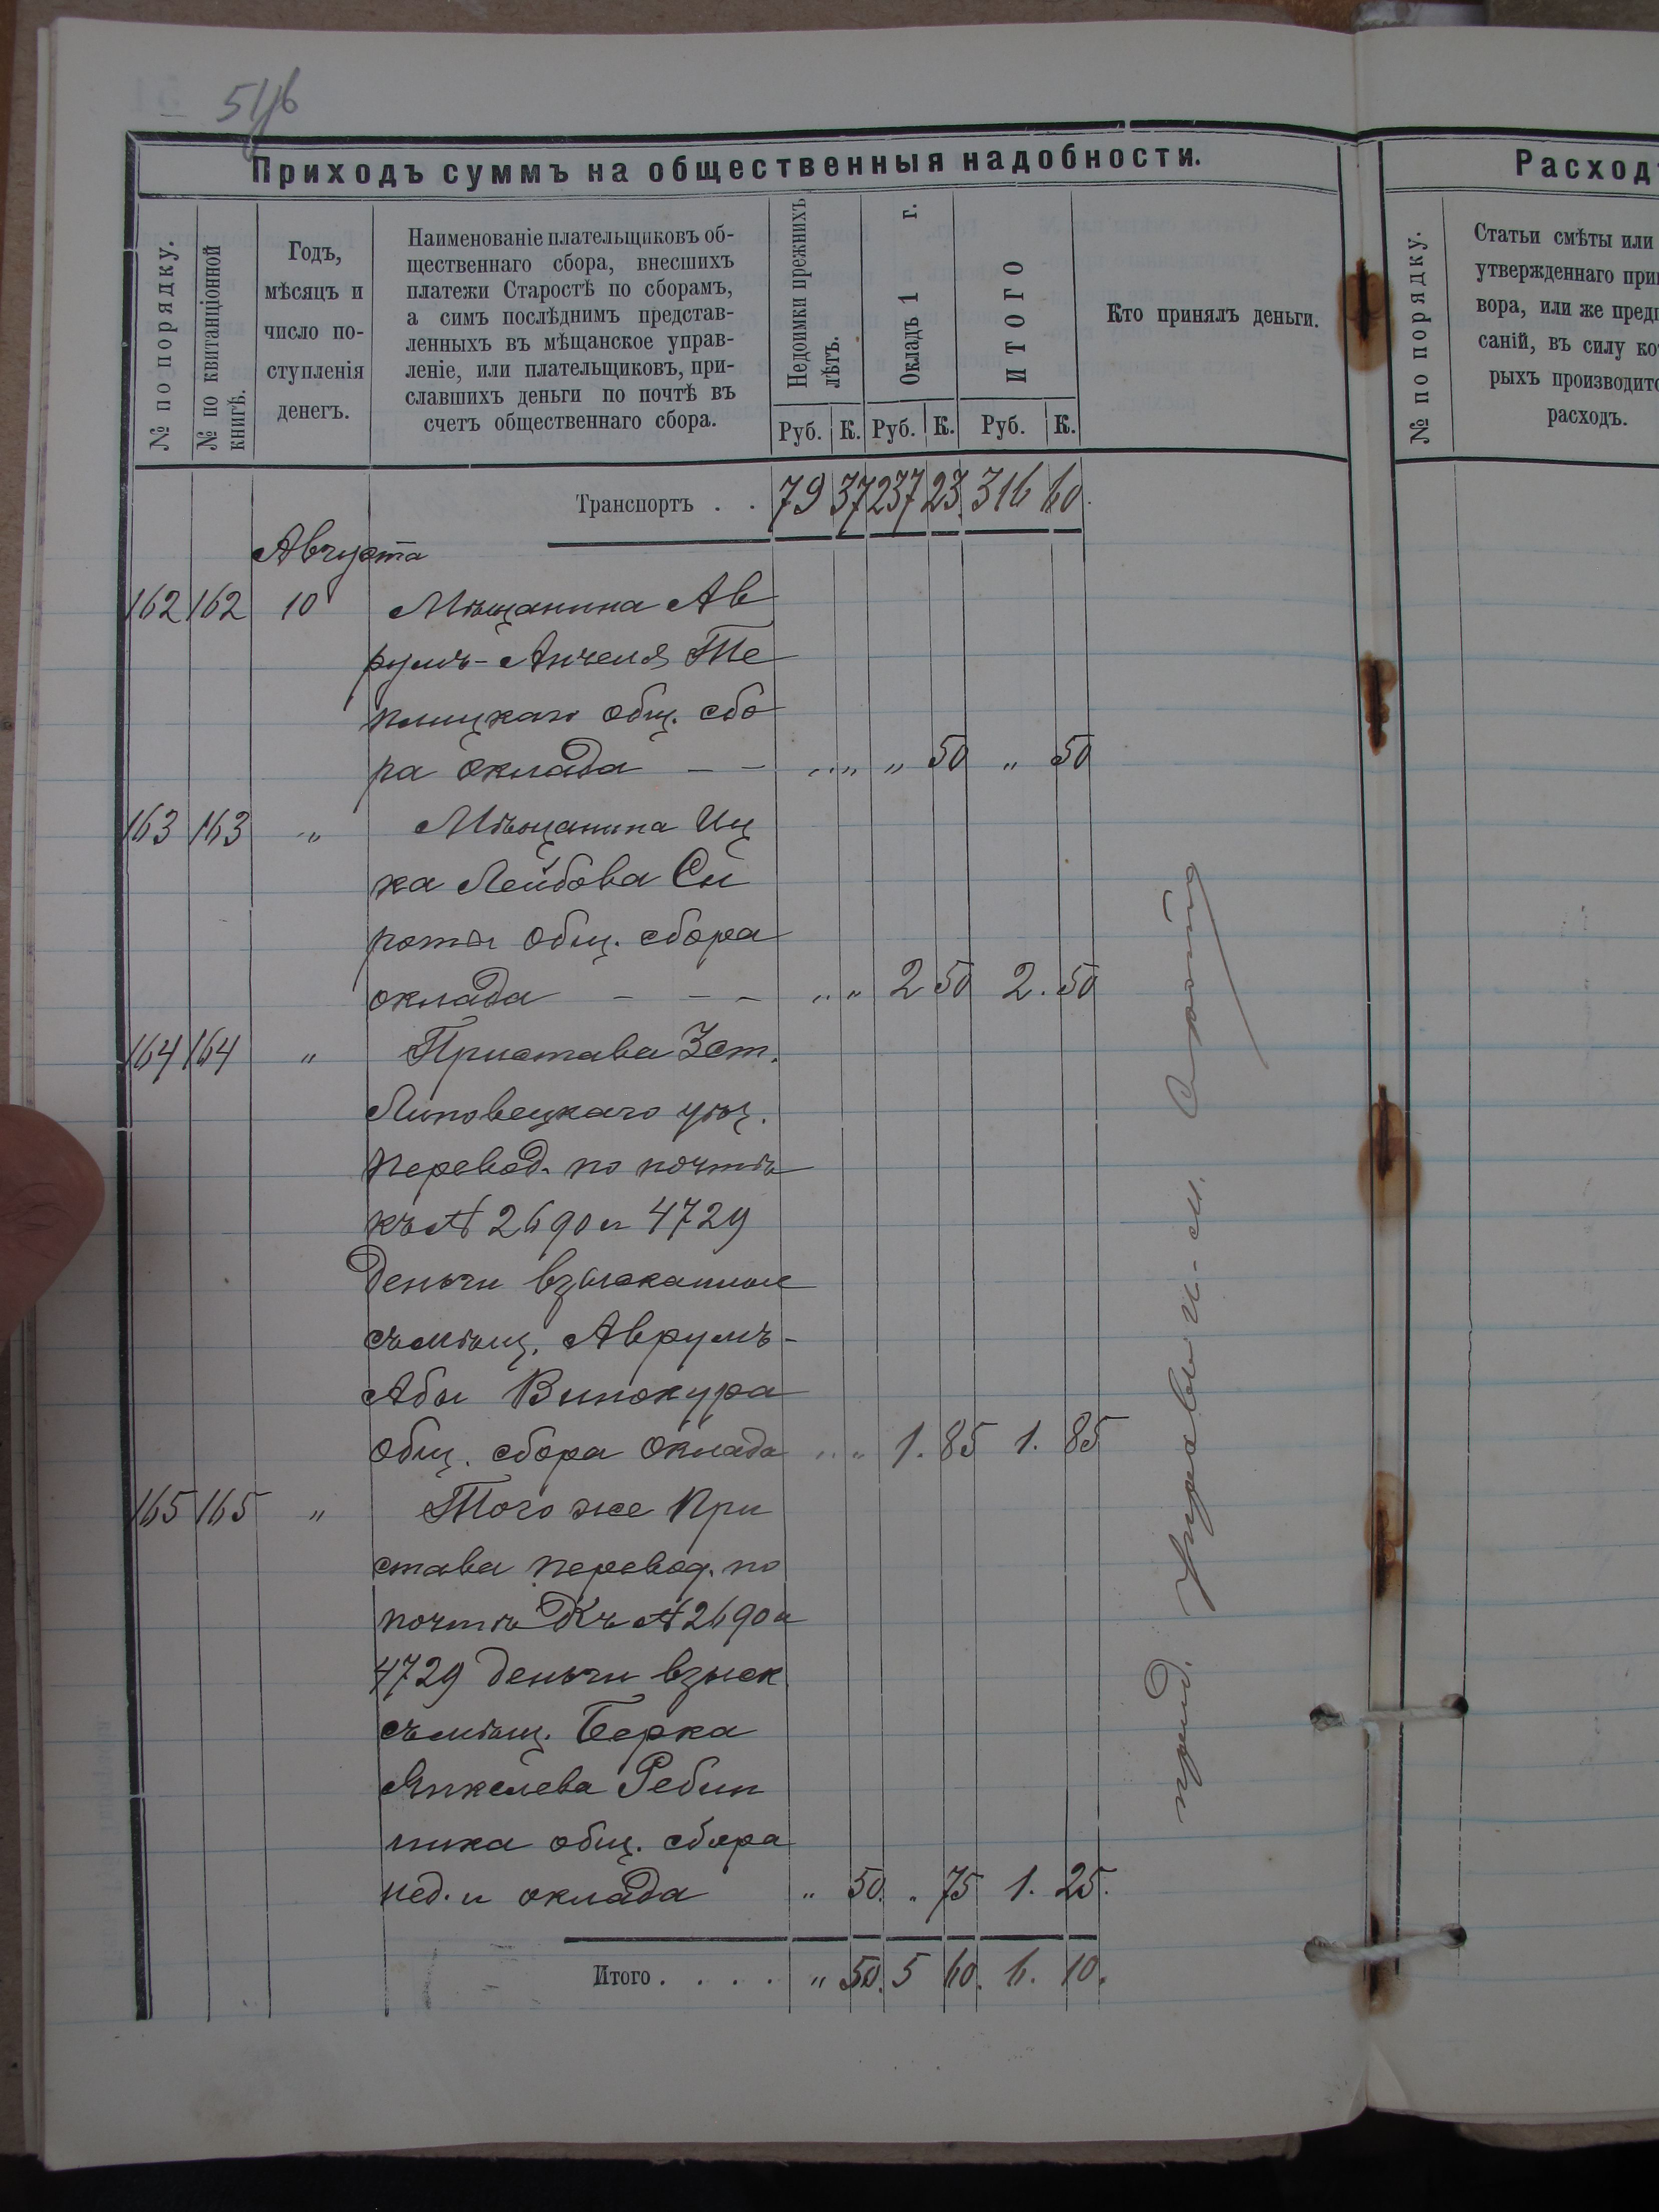 51об
Приходъ суммъ на общественныя надобности.
№ по порядку.
№ по квитанціонной
книгѣ.
Годъ,
мѣсяцъ и
число по-
ступленія
денегъ.
Наименованіе плательщиковъ об-
щественнаго сбора, внесшихъ
платежи Старостѣ по сборамъ,
а симъ послѣднимъ представ-
ленныхъ въ мѣщанское управ-
леніе, или плательщиковъ, при-
славшихъ деньги по почтѣ въ
счетъ общественнаго сбора.
Недоимки прежнихъ
лѣтъ.
Окладъ 1 г.
ИТОГО
Руб. К. Руб. К. Руб. К.
Кто принялъ деньги.
Транспортъ . . 79 37 237 23. 316 60.
Августа
162 162 10 Мѣщанина Ав
румъ-Анчеля Те
плицкаго общ. сбо
ра оклада — — „ „ „ 50 „ 50
163 163 „ Мѣщанина Иц
ка Лейбова Си
роты общ. сбора
оклада — — — „ „ 2 50 2. 50
164 164 „ Пристава 3 ст.
Липовецкаго уѣз.
перевод. по почтѣ
къ № 2690 и 4729
деньги взысканные
съ мѣщ. Аврумъ-
Абы Винокура
общ. сбора оклада „ „ 1. 85 1. 85
165 165 „ Того же При
става перевод. по
почтѣ къ № 2690 и
4729 деньги взыск.
съ мѣщ. Берка
Янкелева Ребин
ника общ. сбора
нед. и оклада „ 50. „ 75 1. 25.
Итого . . . . „ 50. 5 60. 6. 10.
Управы И. М.
Расходъ
№ по порядку.
Статьи смѣты или
утвержденнаго при
вора, или же пред
саній, въ силу ко
рыхъ производит
расходъ.